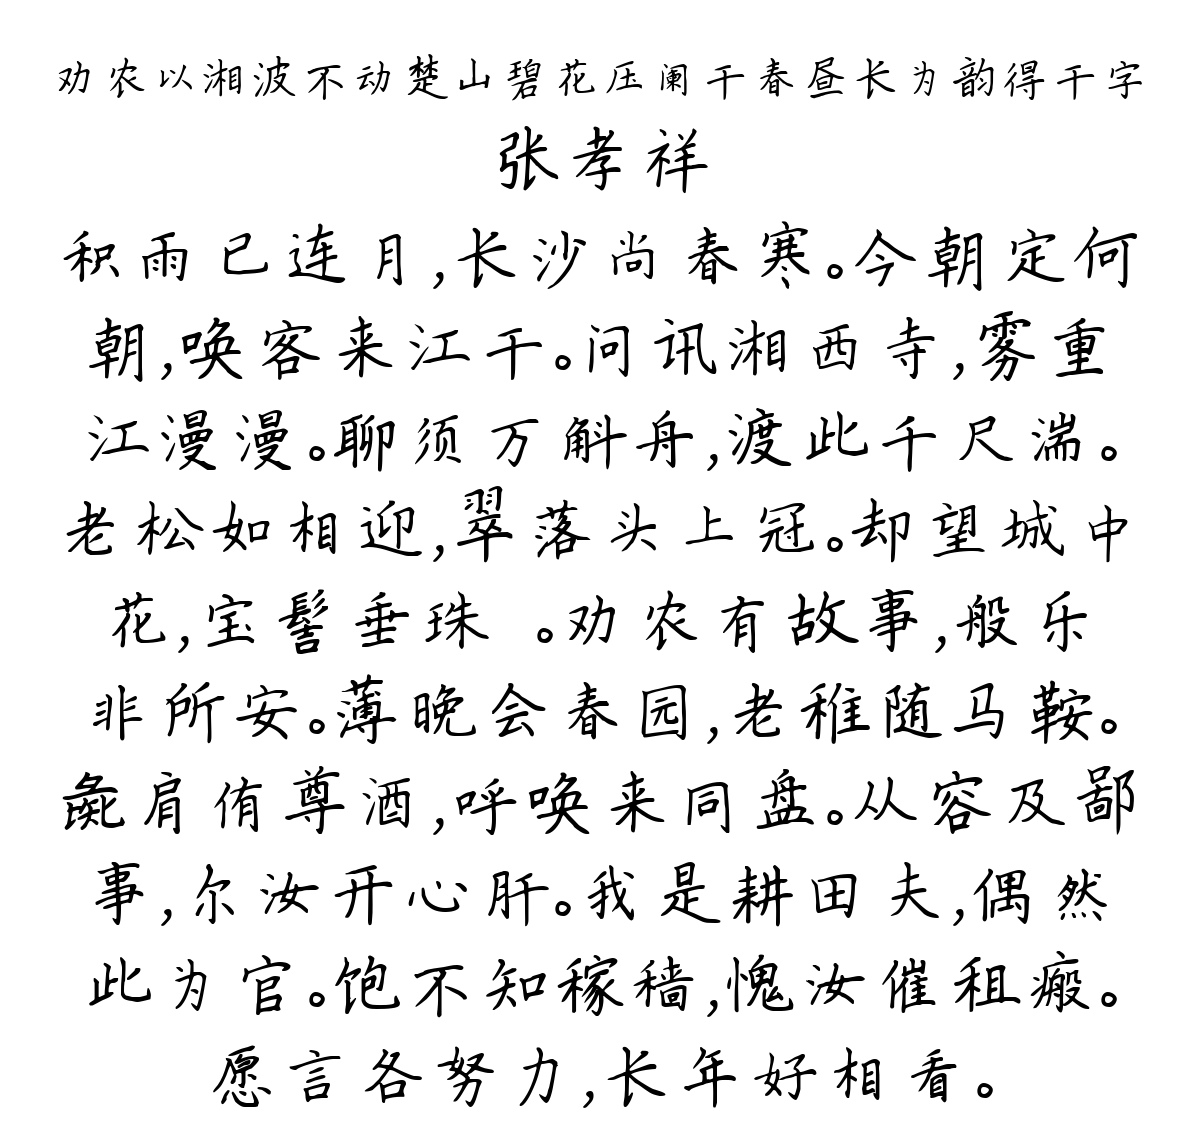 劝农以湘波不动楚山碧花压阑干春昼长为韵得干字
张孝祥
积雨已连月,长沙尚春寒。今朝定何
朝,唤客来江干。问讯湘西寺,雾重
江漫漫。聊须万斛舟,渡此千尺湍。
老松如相迎,翠落头上冠。却望城中
花,宝髻垂珠 。劝农有故事,般乐
非所安。薄晚会春园,老稚随马鞍。
彘肩侑尊酒,呼唤来同盘。从容及鄙
事,尔汝开心肝。我是耕田夫,偶然
此为官。饱不知稼穑,愧汝催租瘢。
愿言各努力,长年好相看。